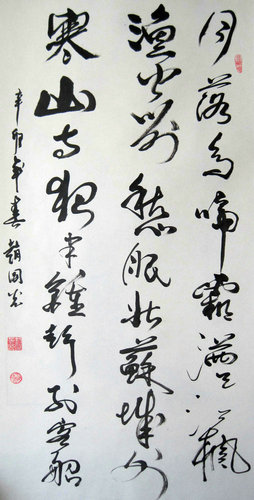 月落烏啼霜滿天江楓
漁火對愁眠姑蘇城外
寒山寺夜半鐘聲到客船
辛卯年春趙國